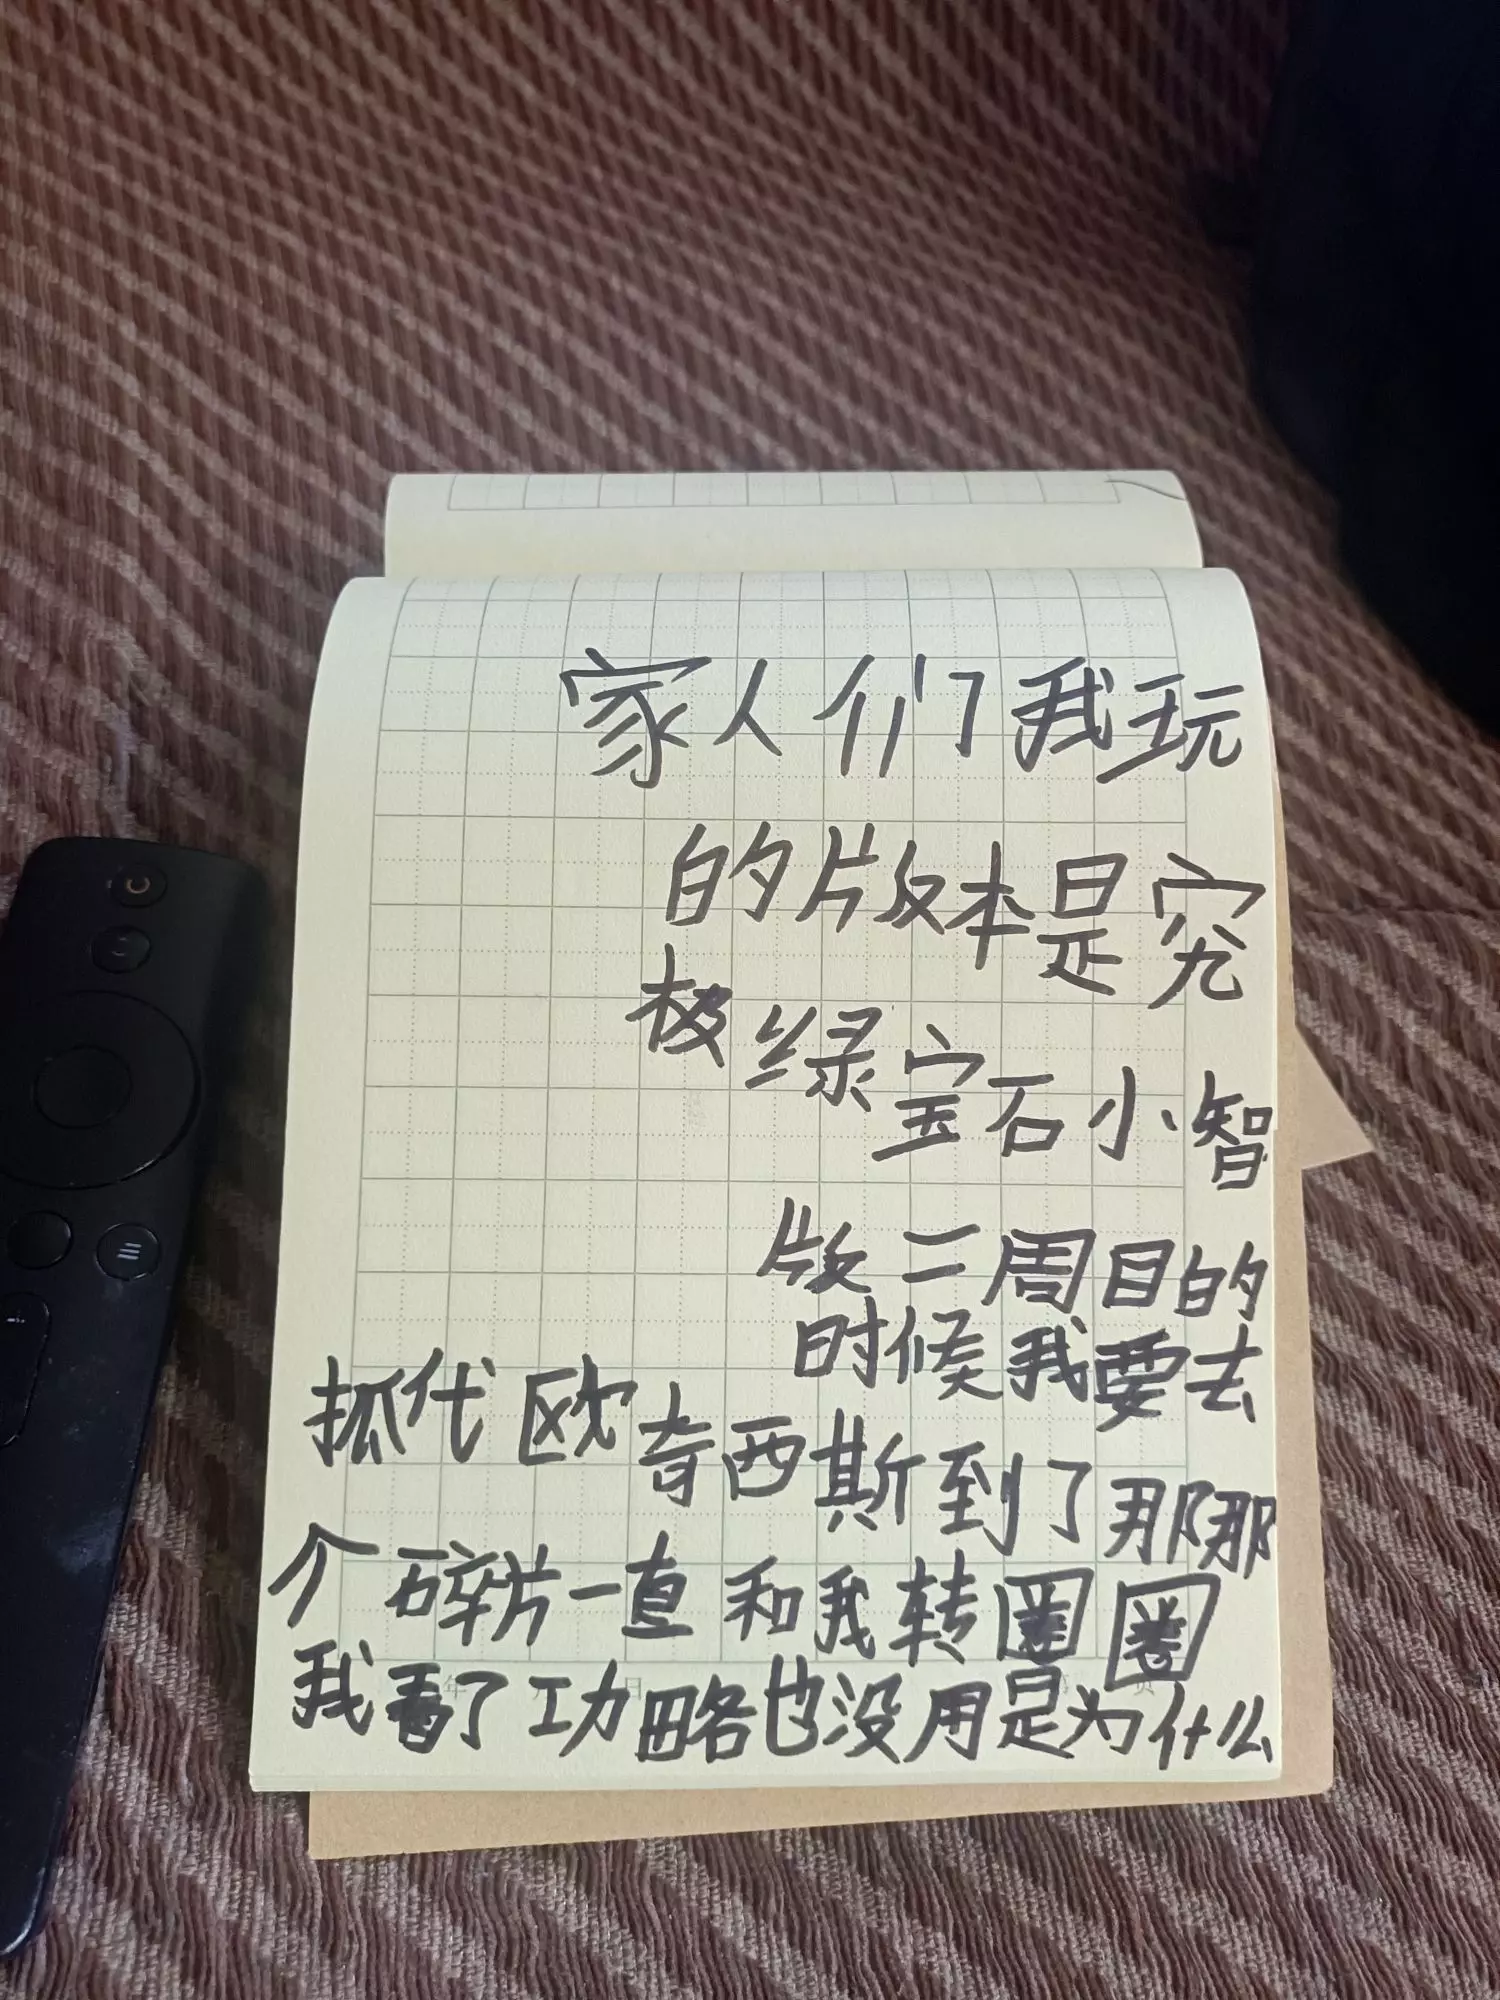 家人们我玩
的版本是究
极绿宝石小智
版二周目的
时候我要去
抓代欧奇西斯到了那那
个碎片一直和我转圈圈
我看了功略也没用是为什么
年 月 日 第 页